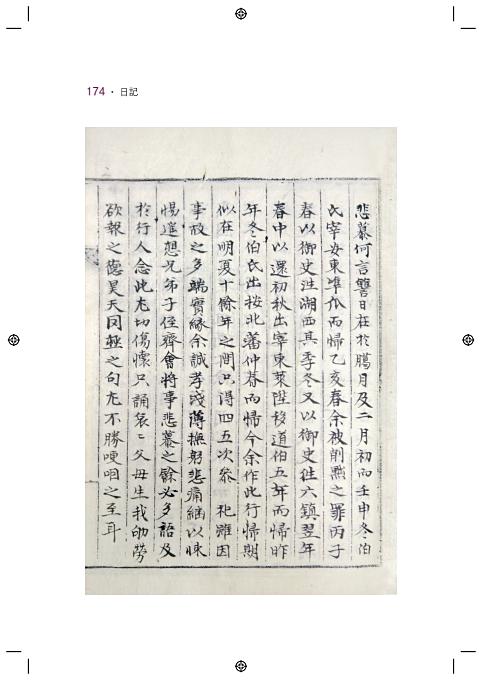 174 · 日記
悲慕何言讐日在於臈月及二月初而壬申冬伯
氏宰安東準瓜而帰乙亥春余被削黜之罪丙子
春以御史泩湖西其季冬又以御史往六鎮翌年
春中以還初秋出宰東萊陞移道伯五年而帰昨
年冬伯氏出按北藩仲春而帰今余作此行帰期
似在明夏十餘年之間只得四五次叅 祀雖因
事故之多端實緣余誠孝淺薄撫躬悲痛継以悚
惕遙想兄弟子侄齊會将事悲慕之餘必多語及
於行人念此尤切傷懷只誦哀〻父母生我劬勞
欲報之德昊天罔極之句尤不勝哽咽之至耳